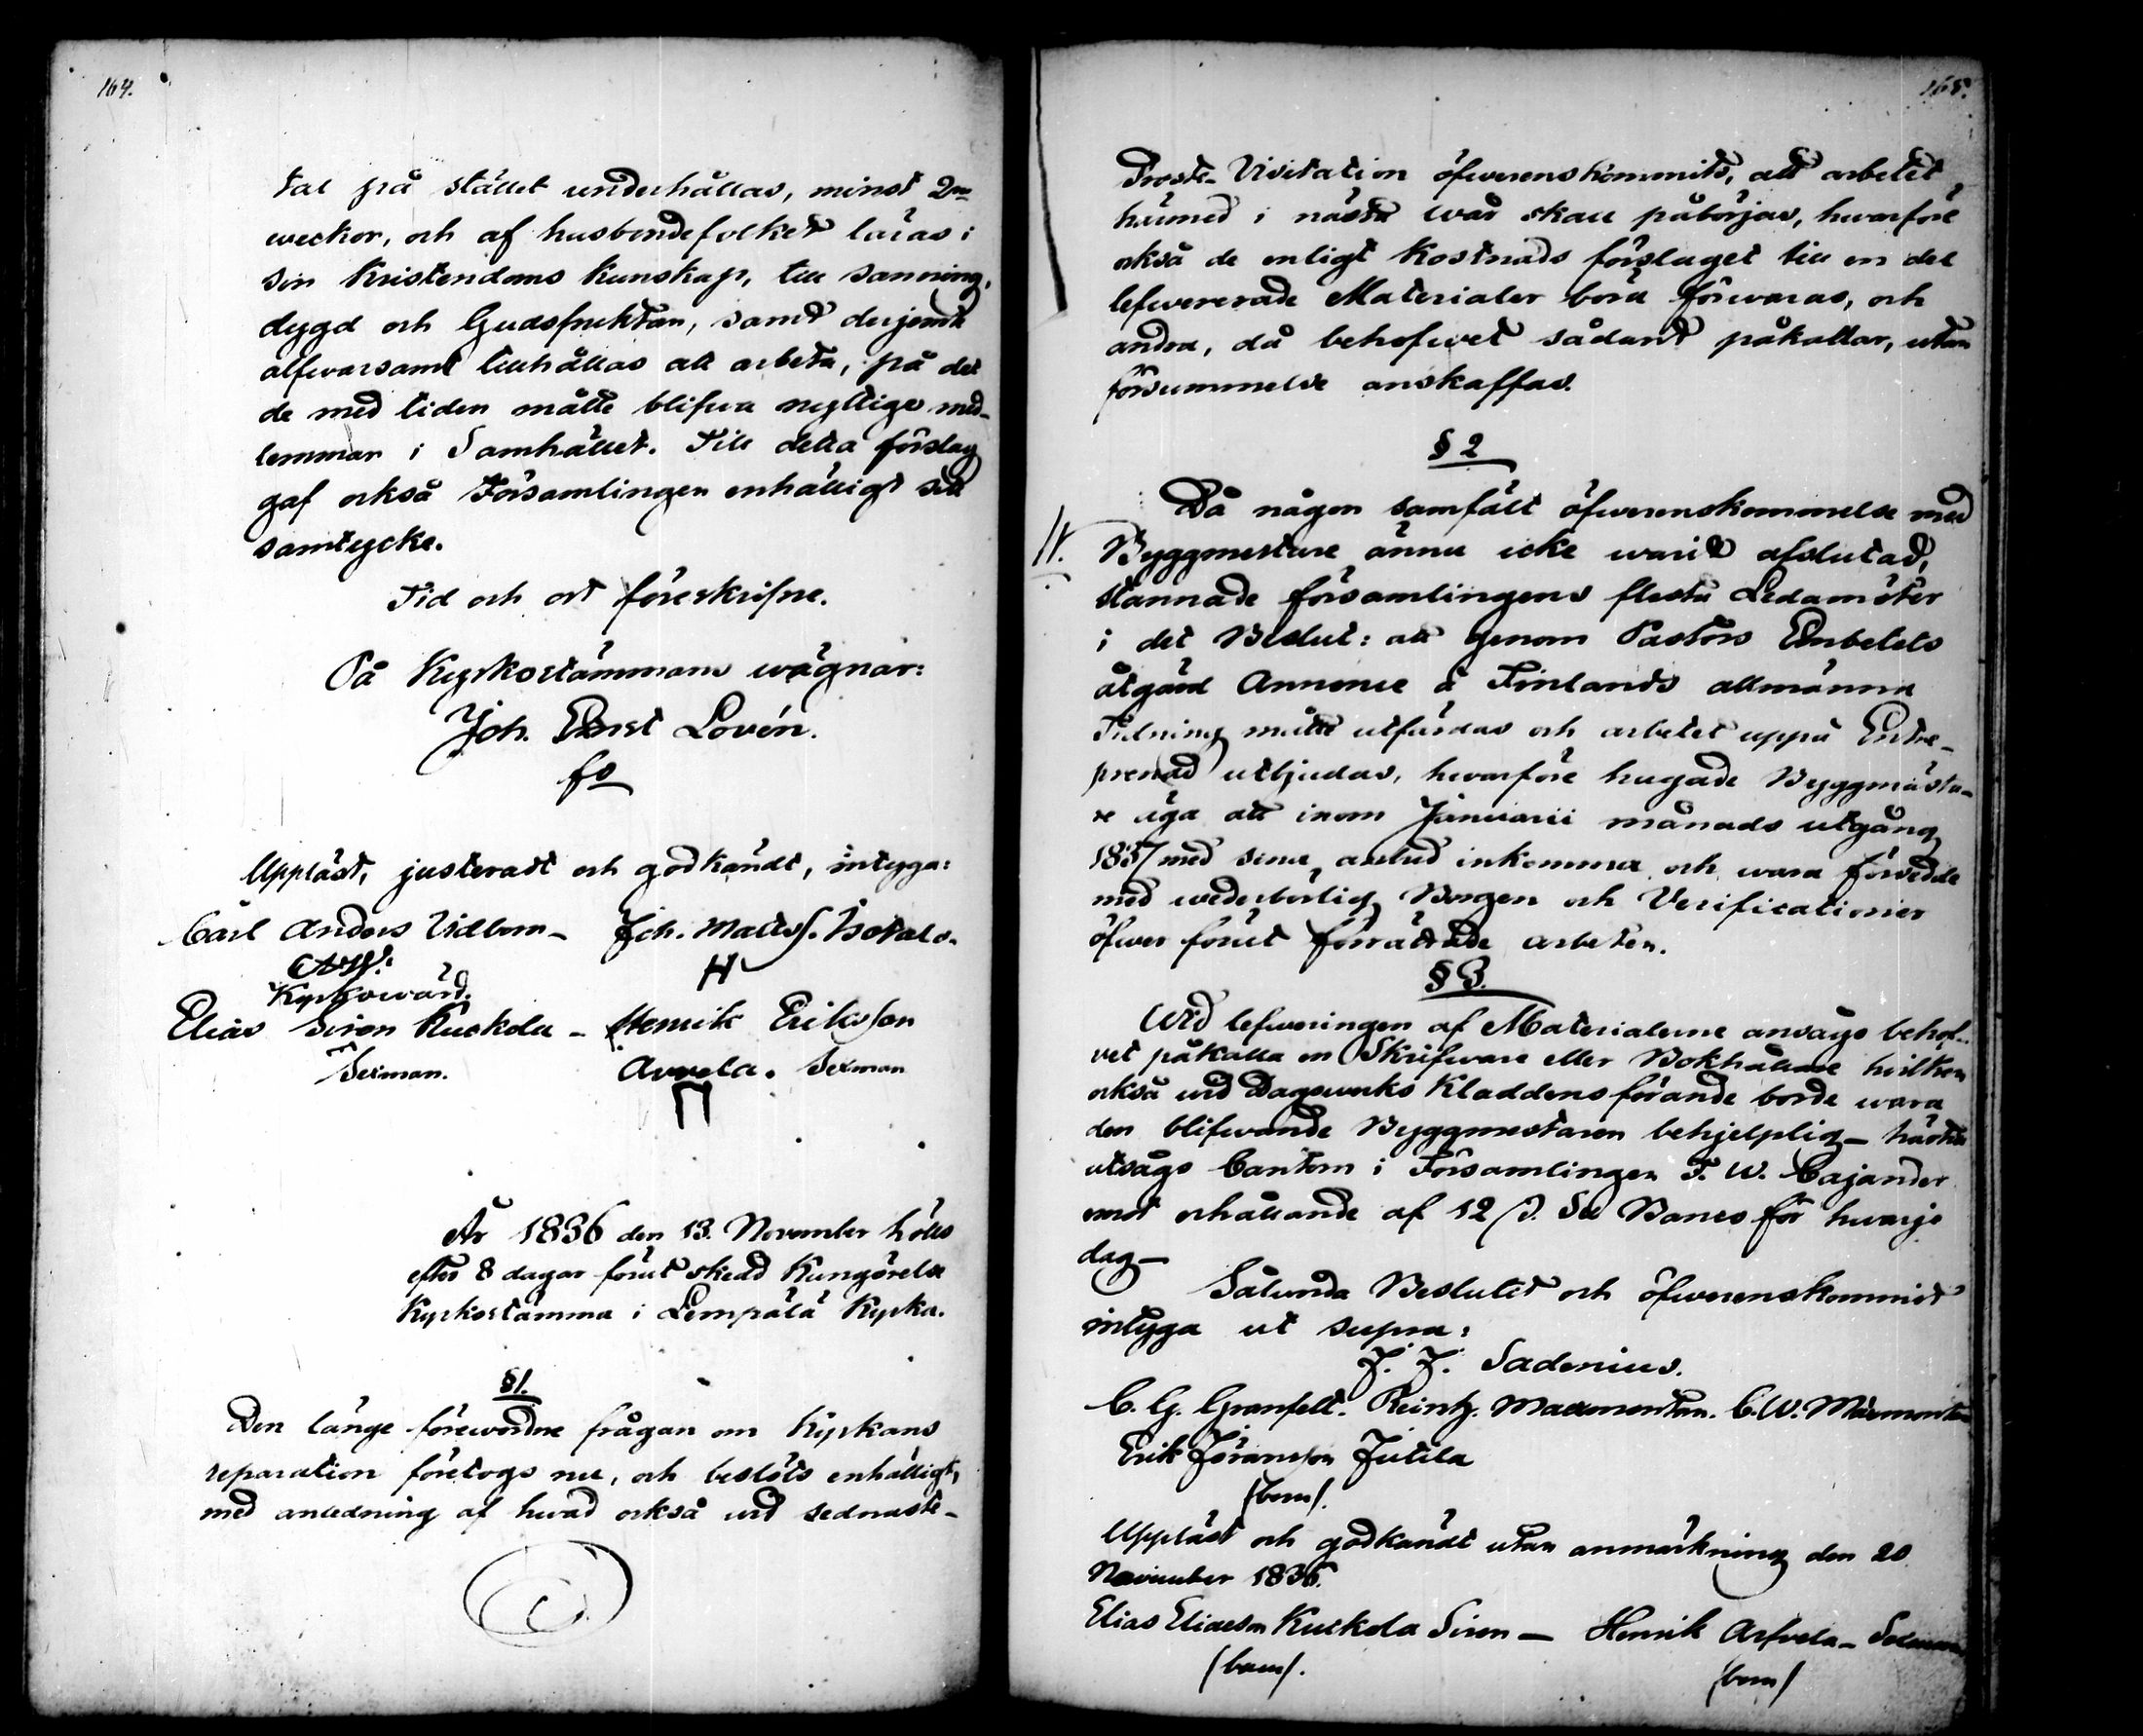 164.
tal på stället underhållas, minst 2ne
weckor, och af husbondefolket läras i
sin Kristendoms kunskap, till sanning,
dygd och Gudsfruktan, samt derjemte
alfwarsamt tillhållas att arbeta, på det
de med tiden måtte blifwa nyttige med-
lemmar i Samhället. Till detta förslag
gaf också Församlingen enhälligt sitt
samtycke.
Tid och ort föreskrifne.
På Kyrkostämmans wägnar:
Joh. Ernst Lovén.
Uppläst, justeradt och godkändt, intyga:
Carl Anders Vidbom - Joh. Matts. Isotalo.
Kyrkowärd.
Elias Siren Kuckola - Henrik Eriksson
Sexman. Arvela. Sexman
År 1836 den 13. November hölls
efter 8 dagar förut skedd Kungörelse
Kyrkostämma i Lempälä Kyrka.
§1.
Den länge förewordne frågan om Kyrkans
reparation företogs nu, och beslöts enhälligt,
med anledning af hwad också wid sednaste-
165.
Proste-Visitation öfwerenskommits, att arbetet
härmed i nästa wår skall påbörjas, hwarföre
också de enligt Kostnads förslaget till en del
lefwererade Materialer böra förwaras, och
andra, då behofwet sådant påkallar, utan
försummelse anskaffas.
§ 2
Då någon samfält öfwerenskommelse med
Byggmestare ännu icke warit afslutad,
stannade församlingens flesta Ledamöter
i det Beslut: att genom Pastors Embetets
åtgärd Annonce å Finlands allmänna
Tidning måtte utfärdas och arbetet uppå Entre-
prenad utbjudas, hwarföre hugade Byggmästa-
re äga att inom Januarii månads utgång
1837 med sina anbud inkomma och wara försedde
med wederbörlig Borgen och Verificationer
öfwer förut förrättade arbeten.
§ 3.
Wid lefwereringen af Materialerne ansågs behof-
vet påkalla en Skrifware eller Bokhållare hvilken
också wid Dagswerks Kladdens förande borde wara
den blifwande Byggmestaren behjelplig - härtill
utsågs Cantorn i Församlingen F. W. Cajander
emot erhållande af 12 s. Banco för hwarje
dag -
Sålunda Beslutet och öfwerenskommit
intyga ut supra:
J. J. Sadenius.
C. G. Granfelt. Reinh. Maexmontan. C. W. Mäxmontan
Erik Jöransson Jutila
(bom).
Uppläst och godkändt utan anmärkning den 20
November 1836.
Elias Eliasson Kuckola Siren - Henrik Arfvela - Sexman
(bom). (bom)